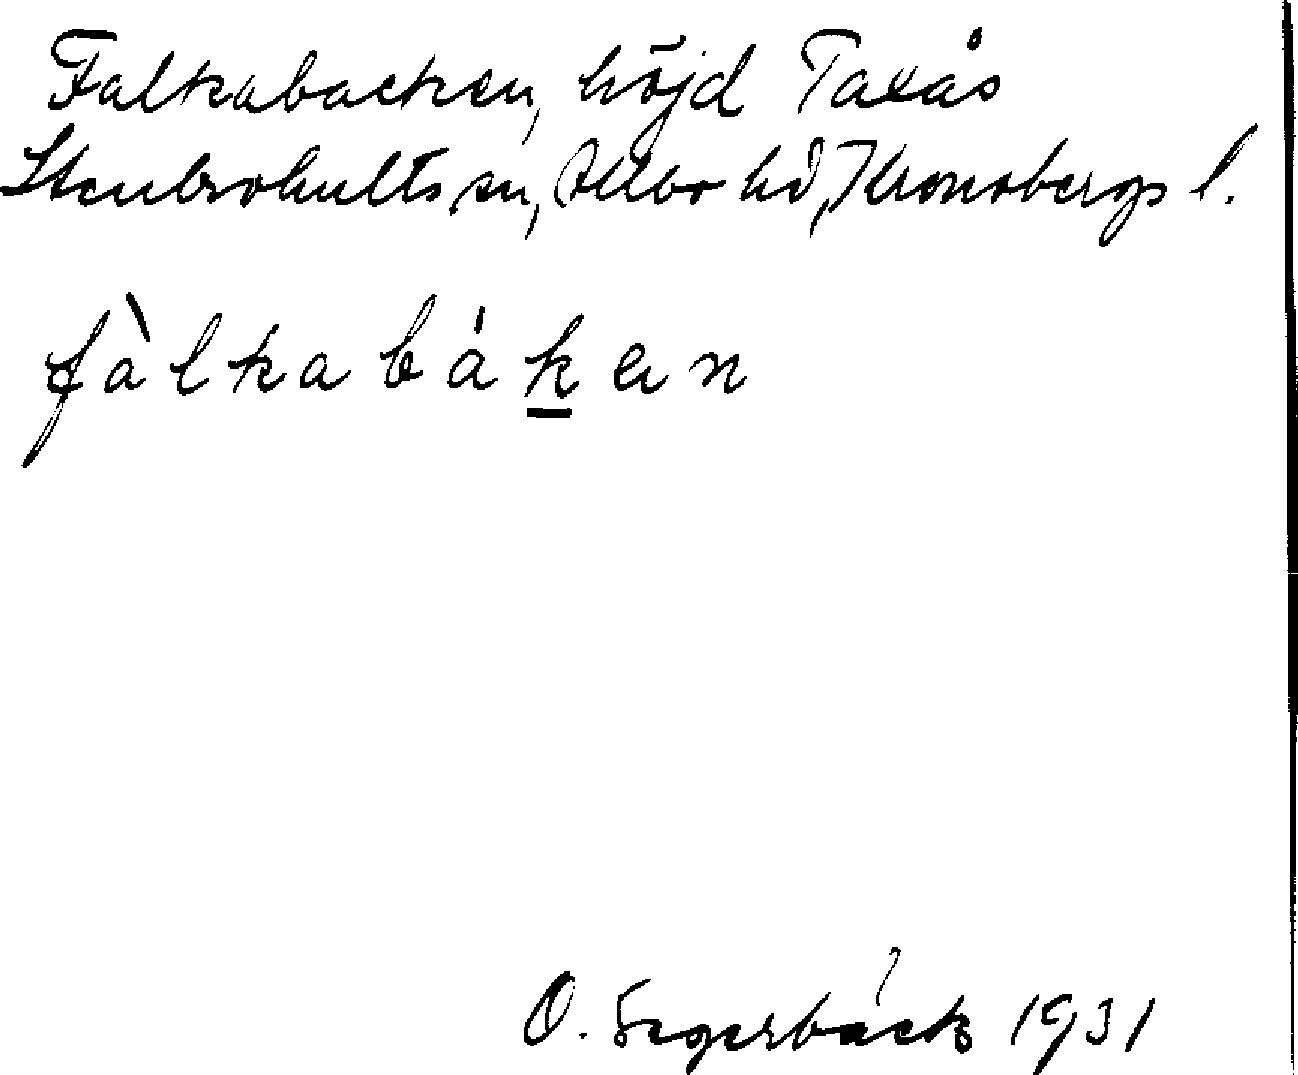 Falkabacken, höjd Taxås
Stenbrohults sn, Allbo hd, Kronobergs l.
fàlkabák̲en
O. Segerbäck 1931